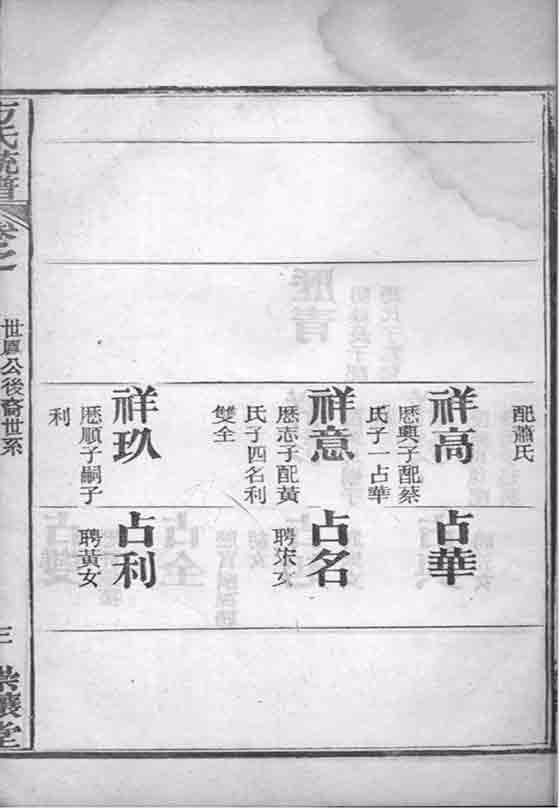 配蕭氏
祥高
歷興子配蔡
氏子一占華
祥意
歷志子配黃
氏子四名利
雙全
祥玖
歷順子嗣子
利
占華
占名
聘宋女
占利
聘黃女
方氏統譜
卷之一
世厚公後裔世系
三
堂